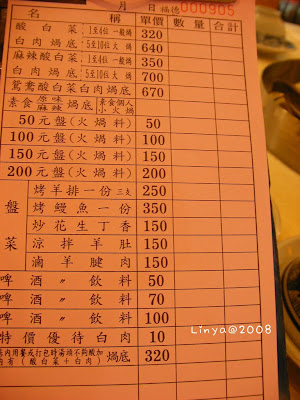 月 日 福德 000905
名 稱 單價 數量 合計
酸白菜 1至4位 一般鍋 320
白肉鍋底 5至10位 大鍋 640
麻辣酸白菜 1至4位 一般鍋 350
白肉鍋底 5至10位 大鍋 700
鴛鴦酸白菜白肉鍋底 670
素食 原味 麻辣 鍋底 素食個人小火鍋
50元盤(火鍋料) 50
100元盤(火鍋料) 100
150元盤(火鍋料) 150
200元盤(火鍋料) 200
盤菜
烤羊排一份 三支 250
烤鰻魚一份 350
炒花生丁香 150
涼拌羊肚 150
滷羊腱肉 150
啤酒〃飲料 50
啤酒〃飲料 70
啤酒〃飲料 100
特價優待白肉 10
內用餐或打包時湯頭不夠酸加
有(酸白菜+白肉) 鍋底 320
Linya@2008